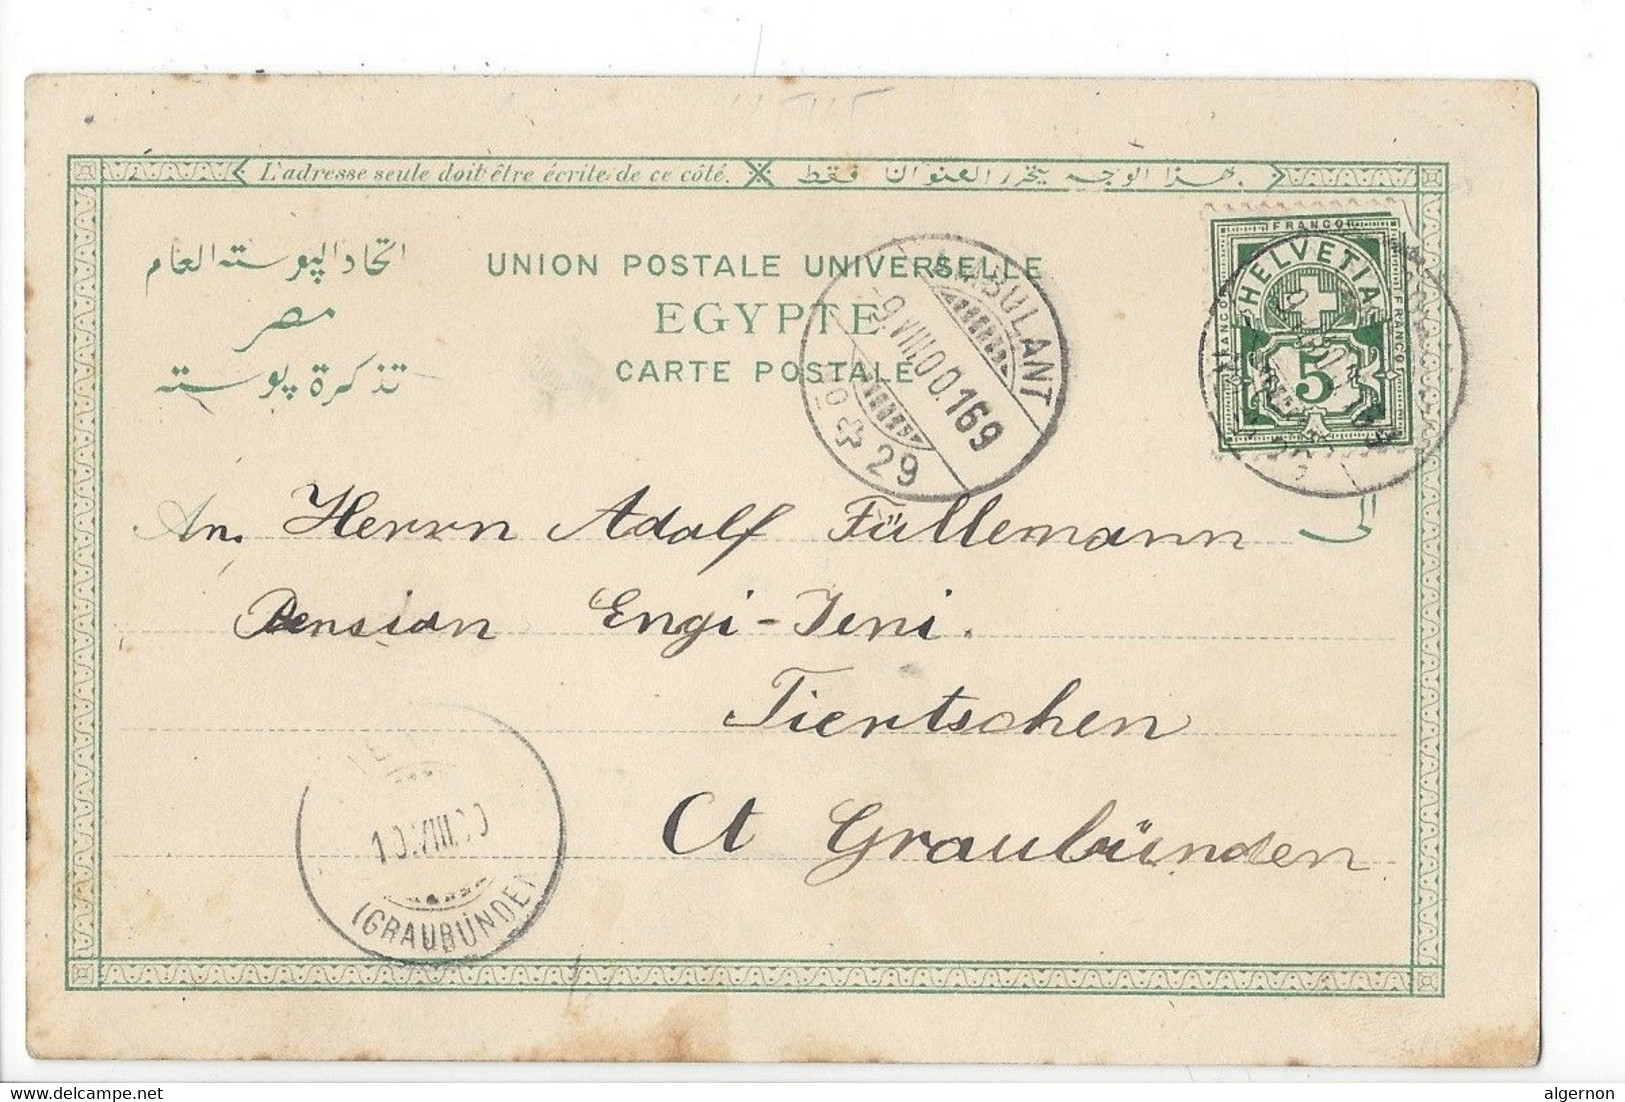 L'adresse seule doit être écrite de ce côté. بهذا الوجه يتحرر العنوان فقط
اتحاد البوسته العام
مصر
تذكرة بوسته
UNION POSTALE UNIVERSELLE
EGYPTE
CARTE POSTALE
AMBULANT
9.VIII.00.169
No 29
FRANCO
HELVETIA
FRANCO
FRANCO
5
الى
An Herrn Adolf Füllemann
Pension Engi-Jeni.
Tiertschen
Ct Graubünden
10.VIII.00
(GRAUBÜNDEN
delcampe.net
algernon